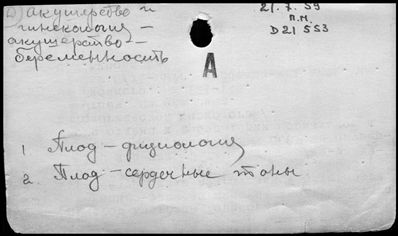 D) акушерство и
гинекология –
акушерство –
беременность
21.7.59
П.М.
D21553
A
1 Плод – физиология
2. Плод – сердечные тоны